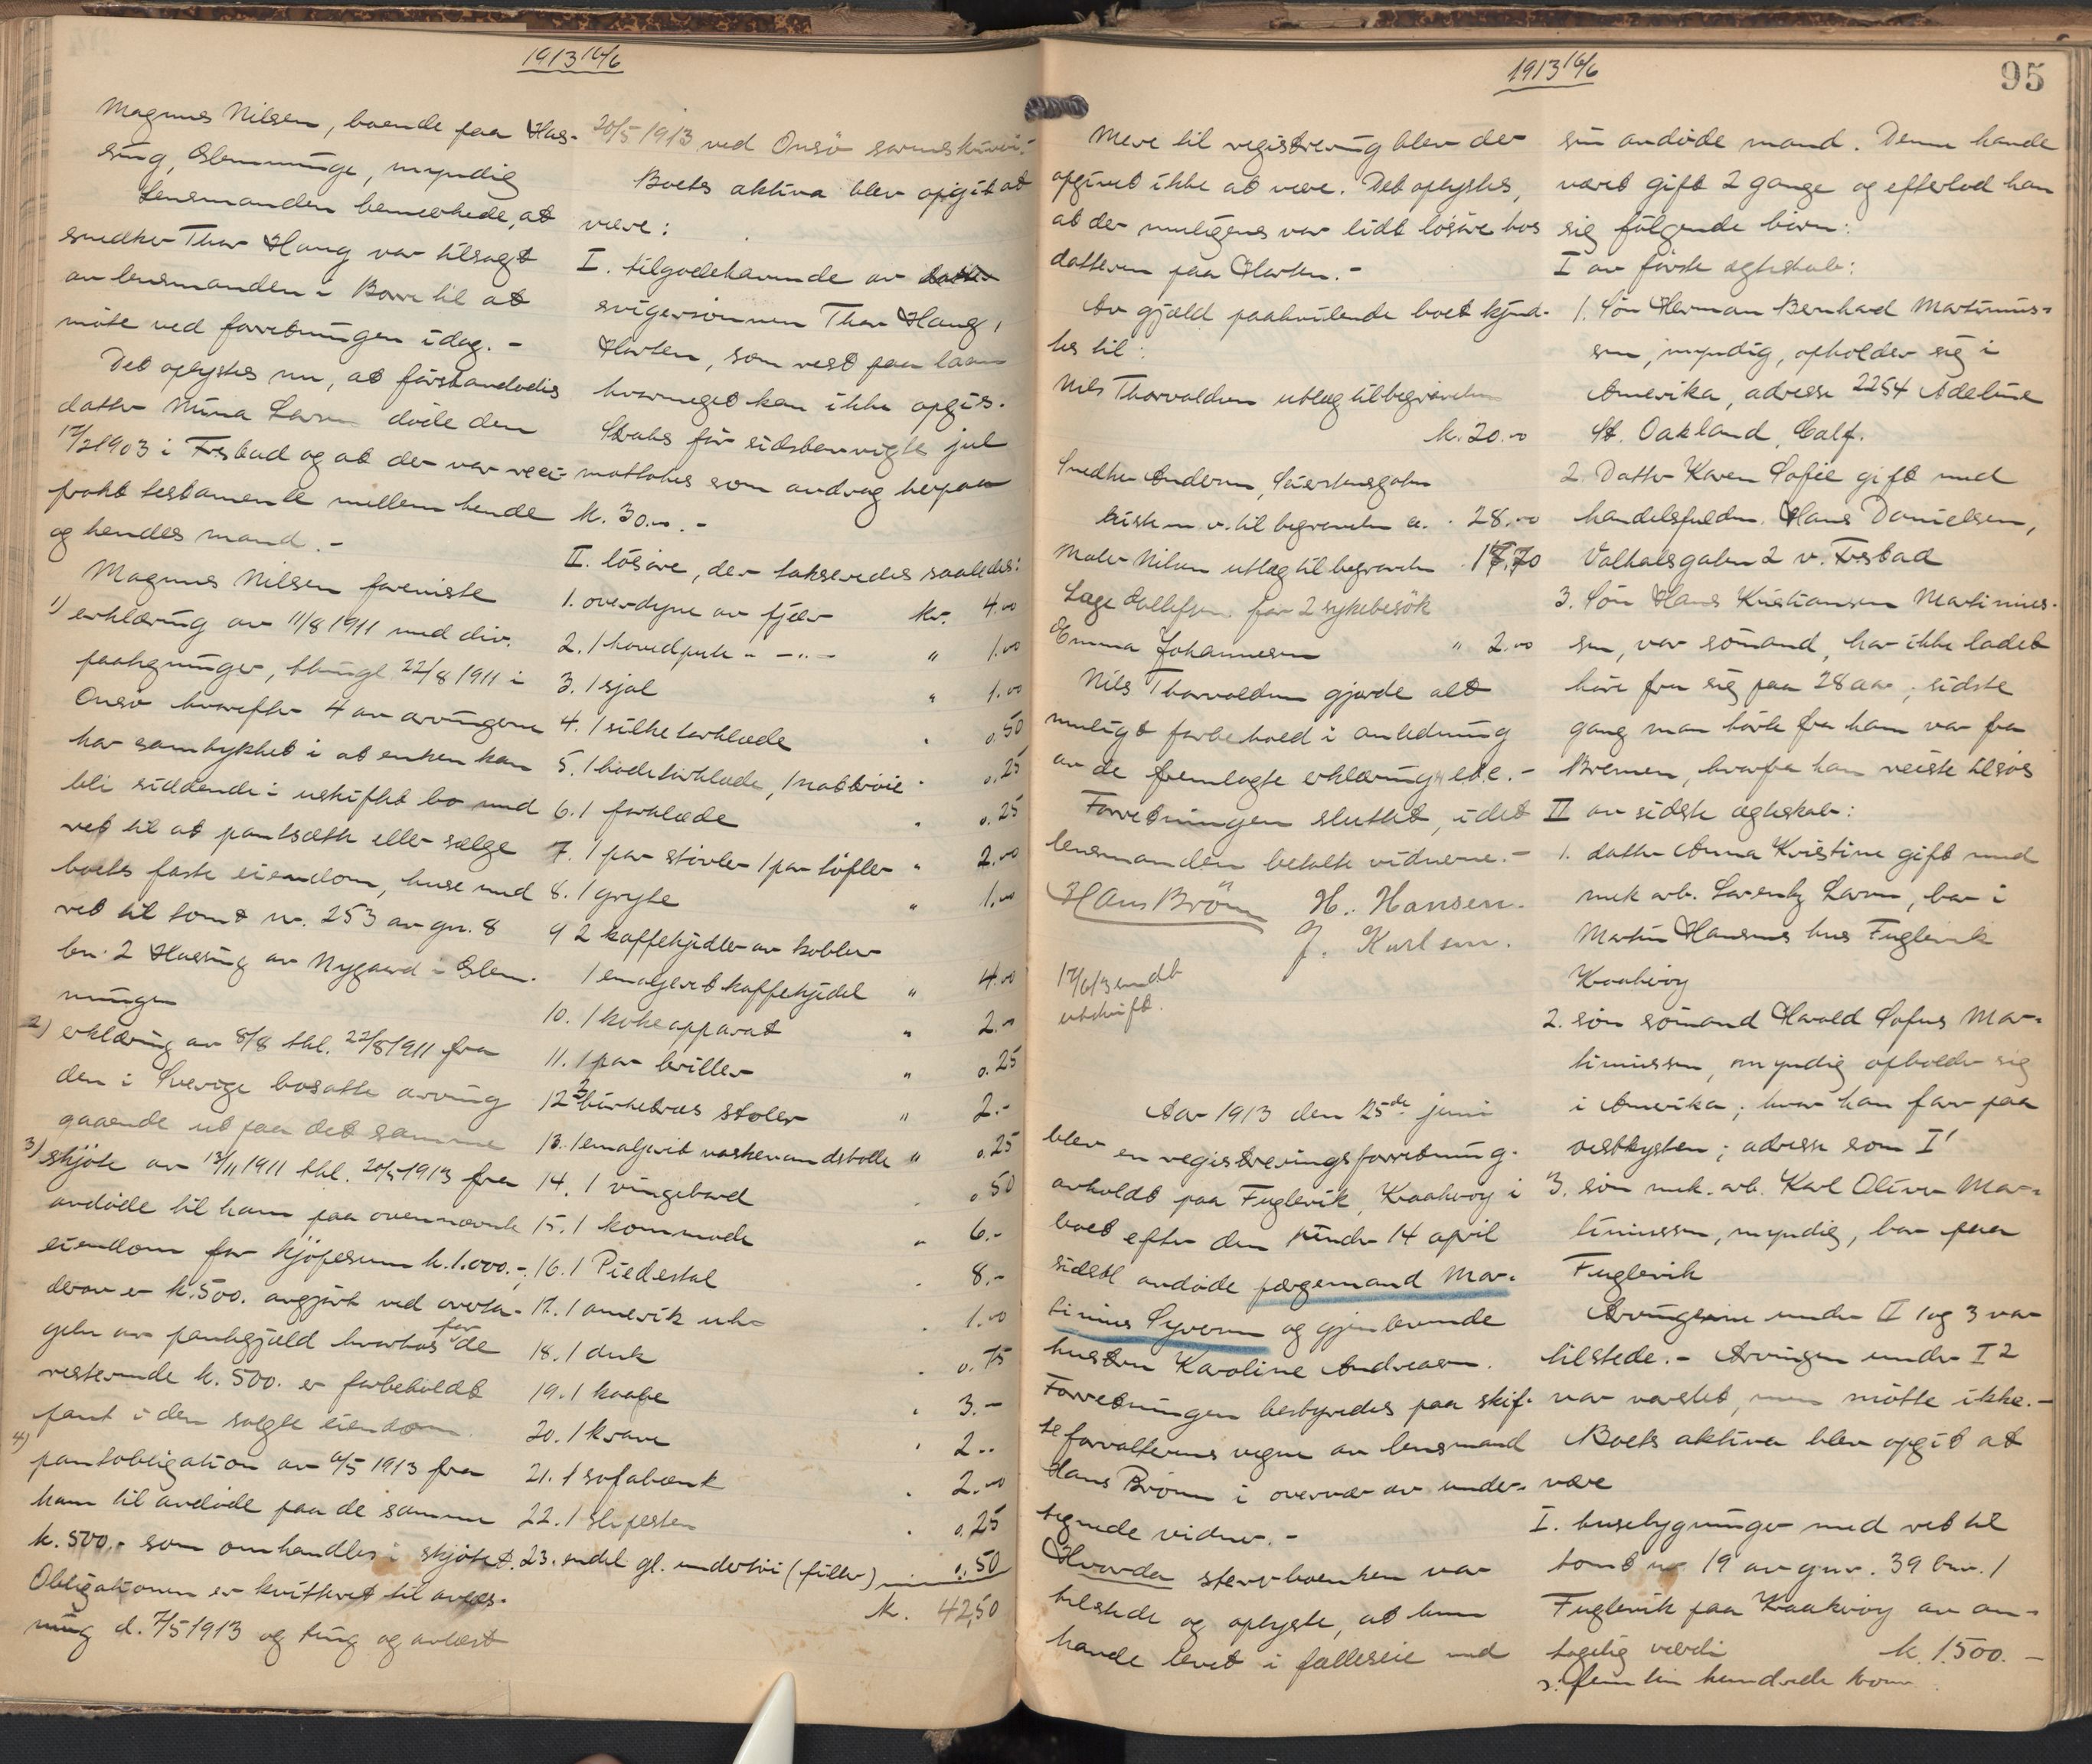 1913 16/6
Magnus Nilsen, boende paa Has-
sing, Glemminge, myndig
Lensmanden bemerkede, at
snedker Thor Haug var tilsagt
av lensmanden i Borre til at
møte ved forretningen idag. -
Det oplystes nu, at førstavdødes
datter Mina Larsen døde den
12/2 1903 i Frstad og at der var reci-
prokt testamente mellem hende
og hendes mand. -
Magnus Nilsen foreviste
1) erklæring av 11/8 1911 med div.
paategninger, thingl. 22/8 1911 i
Onsø hvorefter 4 av arvingerne
har samtykket i at enken kan
bli siddende i uskiftet bo med
ret til at pantsætte eller sælge
boets faste eiendom, huse med
ret til tomt nr. 253 av gn. 8
bn. 2 Hassing av Nygaard i Glem-
minge
2) erklæring av 8/8 thl. 22/8 1911 fra
den i Sverige bosatte arving
gaaende ut paa det samme
3) skjøte av 13/11 1911 thl. 20/5 1913 fra
avdøde til ham paa ovennævnte
eiendom for kjøpesum k. 1.000.-,
derav er k. 500. avgjort ved overta-
gelse av pantegjæld hvorhos for de
resterende k. 500. er forbeholdt
pant i den solgte eiendom
4) pantobligation av 6/5 1913 fra
ham til avdøde paa de samme
k. 500.- som omhandles i skjøtet.
Obligationen er kvitteret til avlæs-
ning d. 7/5 1913 og ting og avlæst
20/5 1913 ved Onsø sorenskriveri.-
Boets aktiva blev opgit at
være:
I. tilgodehavende av
svigersønnen Thor Haug,
Horten, som rest paa laan
hvormeget kan ikke opgis.
Straks før sidstenvigte jul
mottokes som avdrag herpaa
k. 30.00.-
II. løsøre, der takseredes saaledes:
1. overdyne av fjær kr. 4.00
2. 1 hovedpute - -"- " 1.00
3. 1 sjal " 1.00
4. 1 silketørklæde " 0.50
5. 1 hodetørklæde, 1 nattrøie " 0.25
6. 1 forklæde " 0.25
7. 1 par støvler 1 par tøfler " 2.00
8. 1 gryte " 1.00
9 2 kaffekjedler av kobber
1 emaljert kaffekjedel " 4.00
10. 1 kokeapparat " 2.00
11. 1 par briller " 0.25
12 3 birketræs stoler " 2.-
13. 1 emaljert vaskevandsbolle " 0.25
14. 1 vingebord " 0.50
15. 1 kommode " 6.-
16. 1 Piedestal " 8.-
17. 1 amerik uhr " 1.00
18. 1 duk " 0.75
19. 1 kaape " 3.-
20. 1 krave " 2..
21. 1 sofabænk " 2.00
22. 1 slipesten " 0.25
23. endel gl. undertøi (filler) " 0.50
k. 42,50
1913 16/6
95
Mere til registrering blev der
opgivet ikke at være. Det oplystes,
at der muligens var lidt løsøre hos
datteren paa Horten.-
Av gjæld paahvilende boet kjend-
tes til:
Nils Thorvaldsen utlæg til begravelsen
k. 20.00
Snedker Andersen,
kisten m. v. til begravelsen a. " 28.00
Maler Nilsen utlæg til begravelsen " 17,70
Læge Tollefsen for 2 sykebesøk
Emma Johannesen " 2.00
Nils Thorvaldsen gjorde alt
muligt forbehold i anledning
av de fremlagte erklæringer etc.-
Forretningen sluttet, idet
lensmanden betalte vidnerne.-
Hans Brønn H. Hansen.
J. Karlsen.
17/6 13 sendt
utskrift.
Aar 1913 den 25de juni
blev en registreringsforretning
avholdt paa Fuglevik, Kraakerøy i
boet efter den under 14 april
sidstl avdøde færgemand Mar-
tinius Syversen og gjenlevende
hustru Karoline Andreasen.
Forretningen bestyredes paa skif-
teforvalterens vegne av lensmand
Hans Brønn i overvær av under-
tegnede vidner.-
Hvorda stervboenken var
tilstede og oplyste, at hun
havde levet i fælleseie med
sin avdøde mand. Denne havde
været gift 2 gange og efterlod han
sig følgende børn:
I av første egteskab:
1. Søn Herman Bernhard Martinius-
sen, myndig, opholder sig i
Amerika, adresse 2254 Adeline
St. Oakland, Calf.
2. Datter Karen Sofie gift med
handelsfuldm. Hans Danielsen,
Valhalsgaten 2 v. Frstad
3. Søn Hans Kristiansen Martinius-
sen, var sømand, har ikke ladet
høre fra sig paa 28 aar; sidste
gang man hørte fra ham var fra
Bremen, hvorfra han reiste tilsøs
II av sidste egteskab:
1. datter Anna Kristine gift med
mek arb. Lorentz Larsen, bor i
Martin Hansens hus Fuglevik
Kraakerøy
2. søn sømand Harald Sofus Mar-
tiniussen, myndig opholder sig
i Amerika; hvor han far paa
vestkysten; adresse som I 1
3. søn mek. arb. Karl Oliver Mar-
tiniussen, myndig, bor paa
Fuglevik
Arvingerne under II 1 og 3 var
tilstede.- Arvingen under I 2
var varslet, men møtte ikke.-
Boets aktiva blev opgit at
være
I. husebygninger med ret til
tomt nr 19 av gnr. 39 bnr. 1
Fuglevik paa Kraakerøy av an-
tagelig værdi k. 1.500.-
s. fem ten hundrede kroner